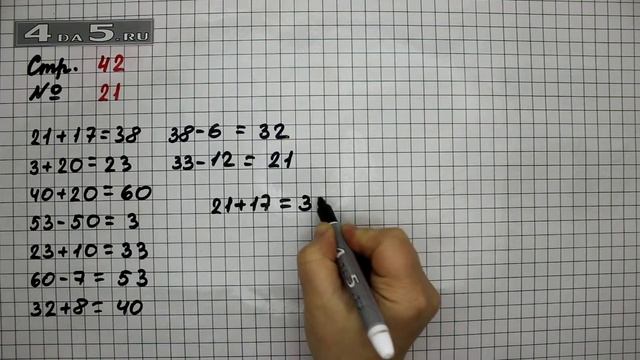 4DA5.RU
Стр. 42
№ 21
21+17=38
3+20=23
40+20=60
53-50=3
23+10=33
60-7=53
32+8=40
38-6=32
33-12=21
21+17=3
4 DA 5